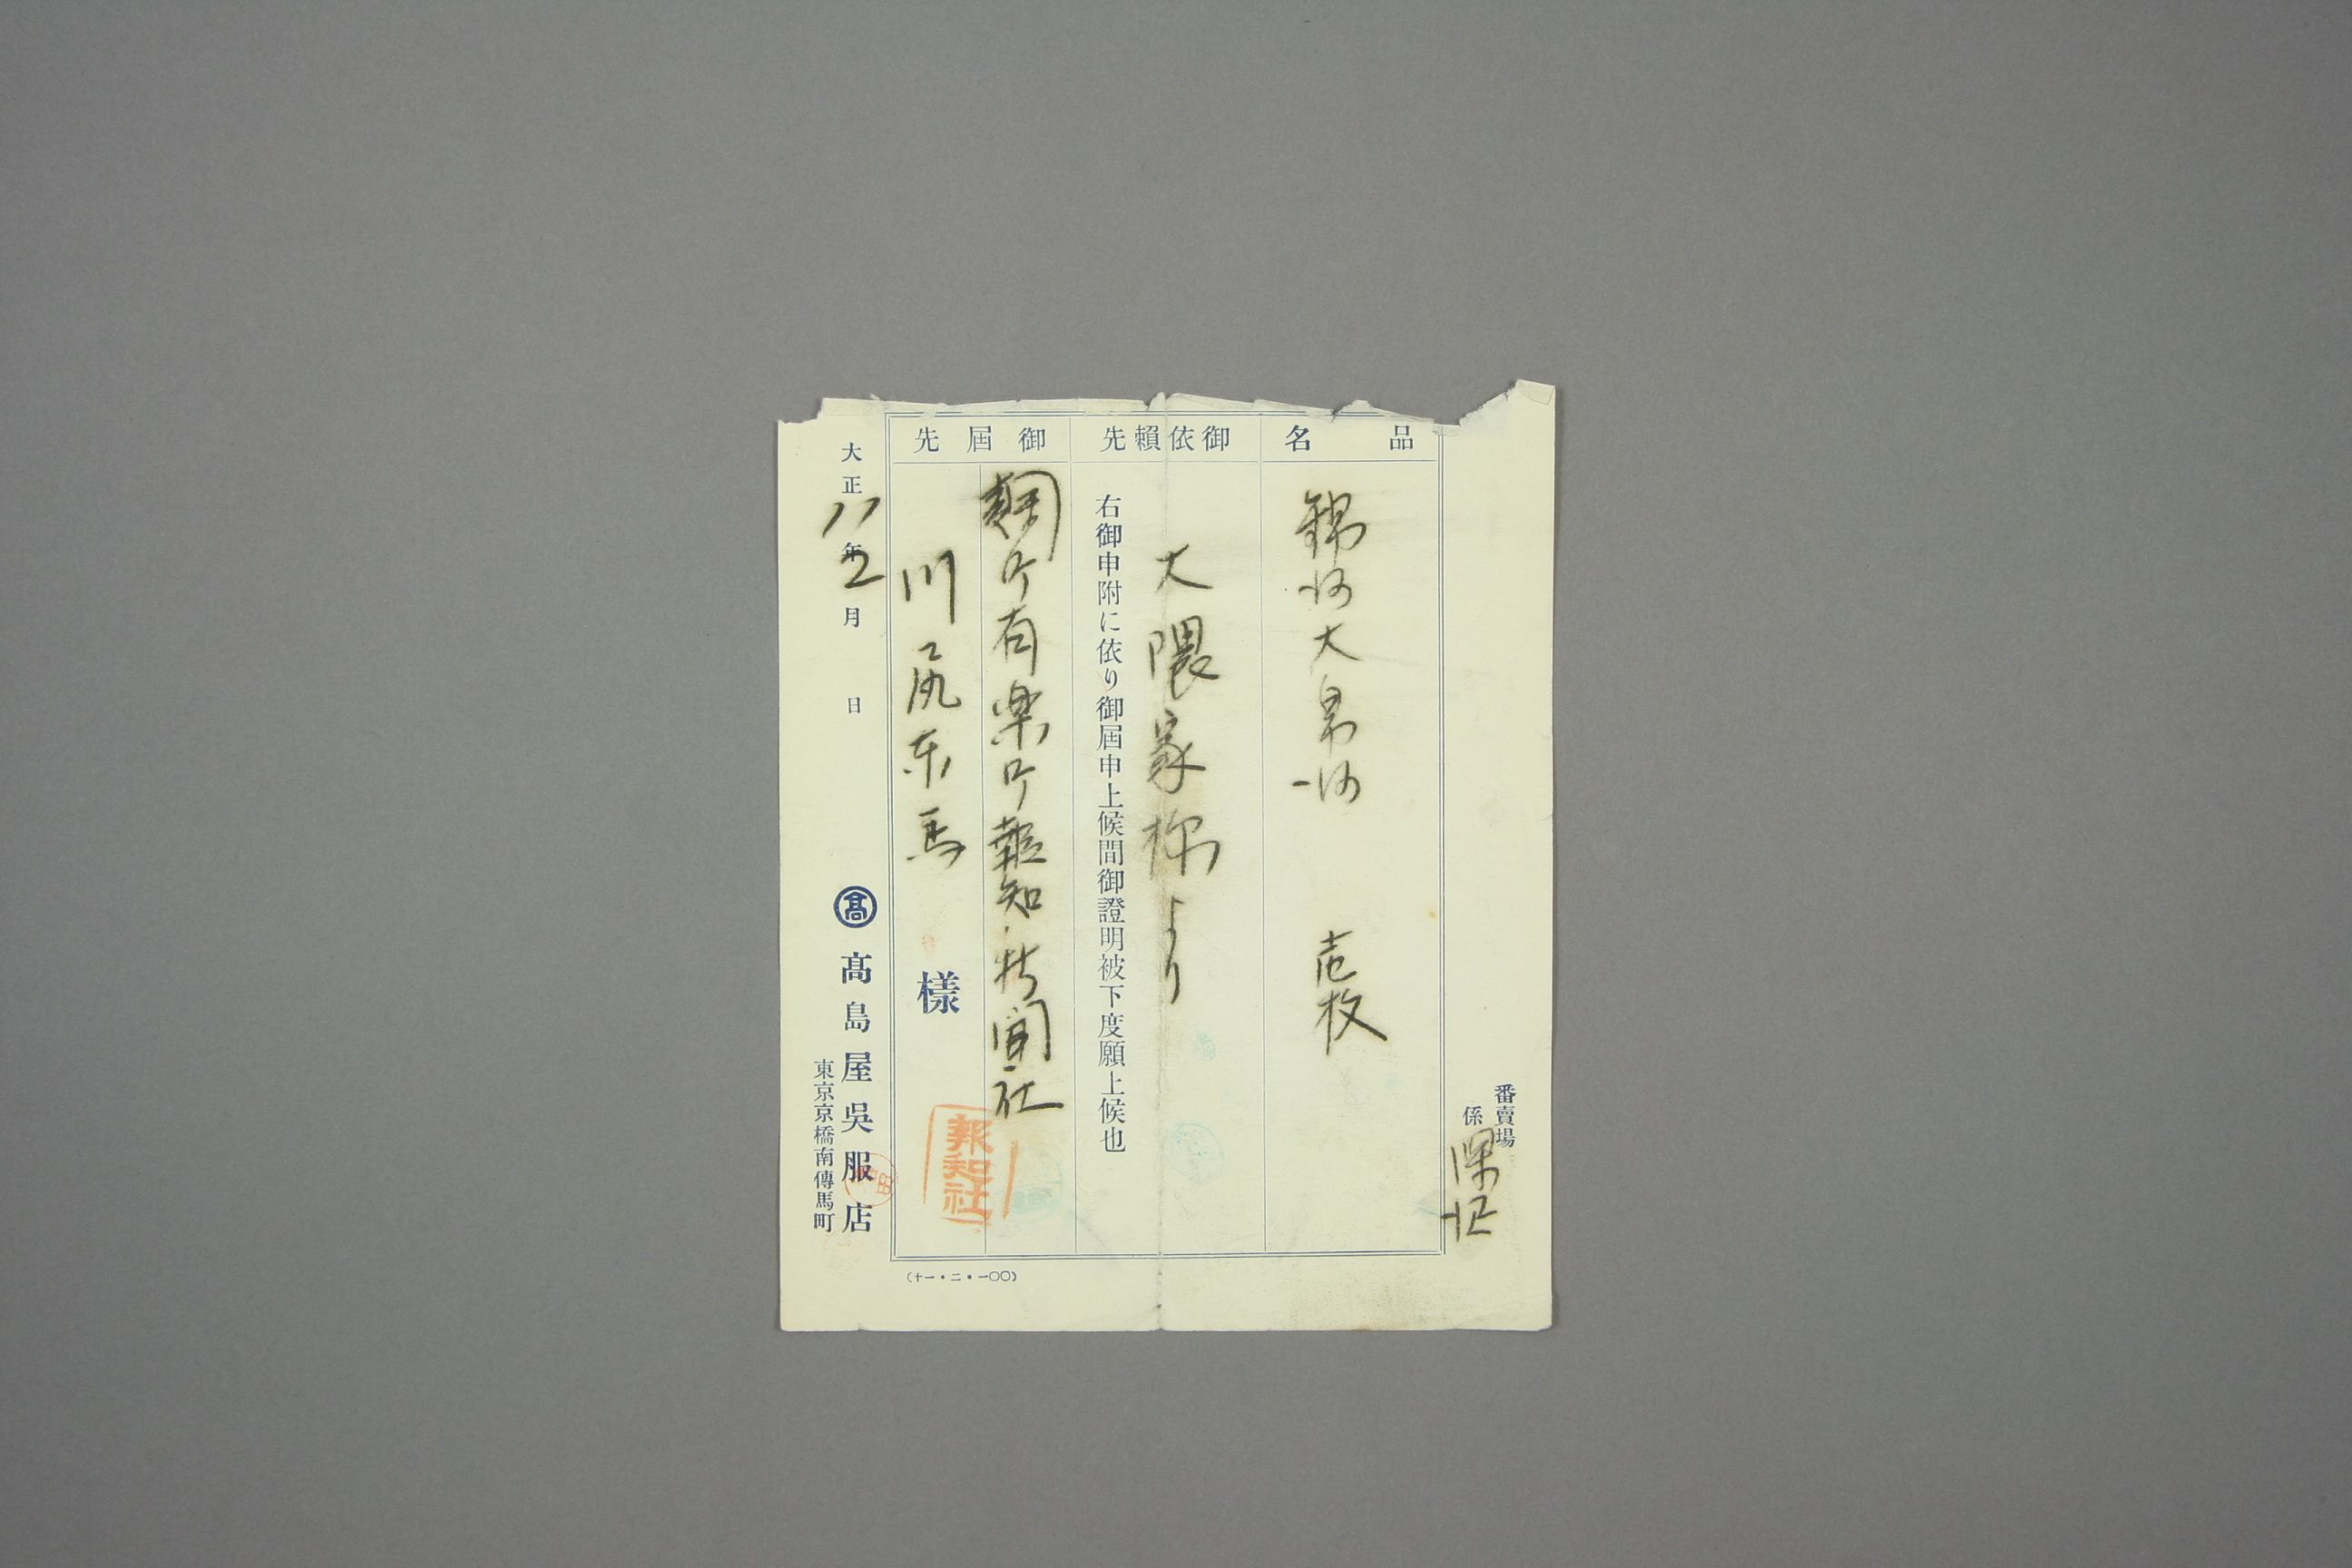 番賣場
係
品名
錦紗大帛紗 壱枚
御依賴先
大隈家様より
右御申附に依り御屆申上候間御證明被下度願上候也
御屆先
麹町有楽町報知新聞社
川尻東馬
樣
報知社
大正11年2月 日
髙
髙島屋吳服店
東京京橋南傳馬町
(十一・二・一〇〇)